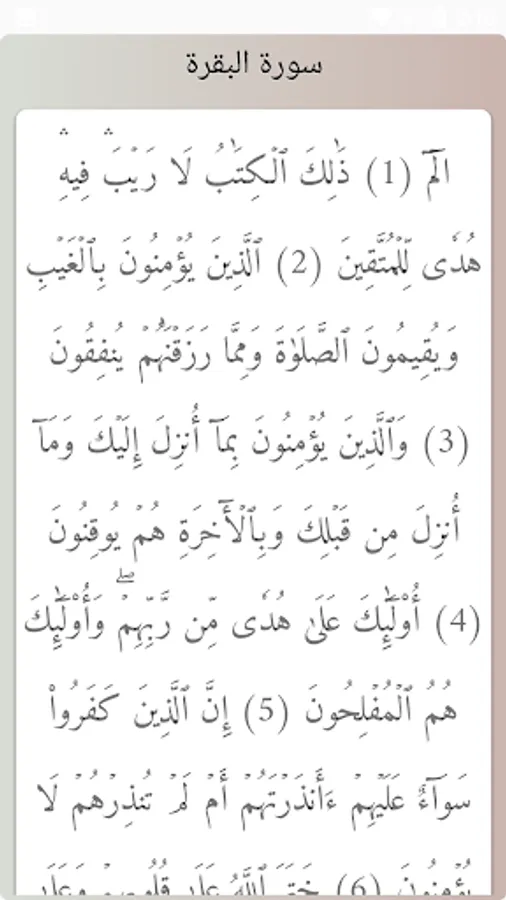 سورة البقرة
الٓمٓ (1) ذَٰلِكَ ٱلْكِتَٰبُ لَا رَيْبَ ۛ فِيهِ ۛ
هُدًى لِّلْمُتَّقِينَ (2) ٱلَّذِينَ يُؤْمِنُونَ بِٱلْغَيْبِ
وَيُقِيمُونَ ٱلصَّلَوٰةَ وَمِمَّا رَزَقْنَٰهُمْ يُنفِقُونَ
(3) وَٱلَّذِينَ يُؤْمِنُونَ بِمَآ أُنزِلَ إِلَيْكَ وَمَآ
أُنزِلَ مِن قَبْلِكَ وَبِٱلْأَخِرَةِ هُمْ يُوقِنُونَ
(4) أُوْلَٰٓئِكَ عَلَىٰ هُدًى مِّن رَّبِّهِمْ ۖ وَأُوْلَٰٓئِكَ
هُمُ ٱلْمُفْلِحُونَ (5) إِنَّ ٱلَّذِينَ كَفَرُوا۟
سَوَآءٌ عَلَيْهِمْ ءَأَنذَرْتَهُمْ أَمْ لَمْ تُنذِرْهُمْ لَا
يُؤْمِنُونَ (6) خَتَمَ ٱللَّهُ عَلَىٰ قُلُوبِهِمْ وَعَلَىٰ